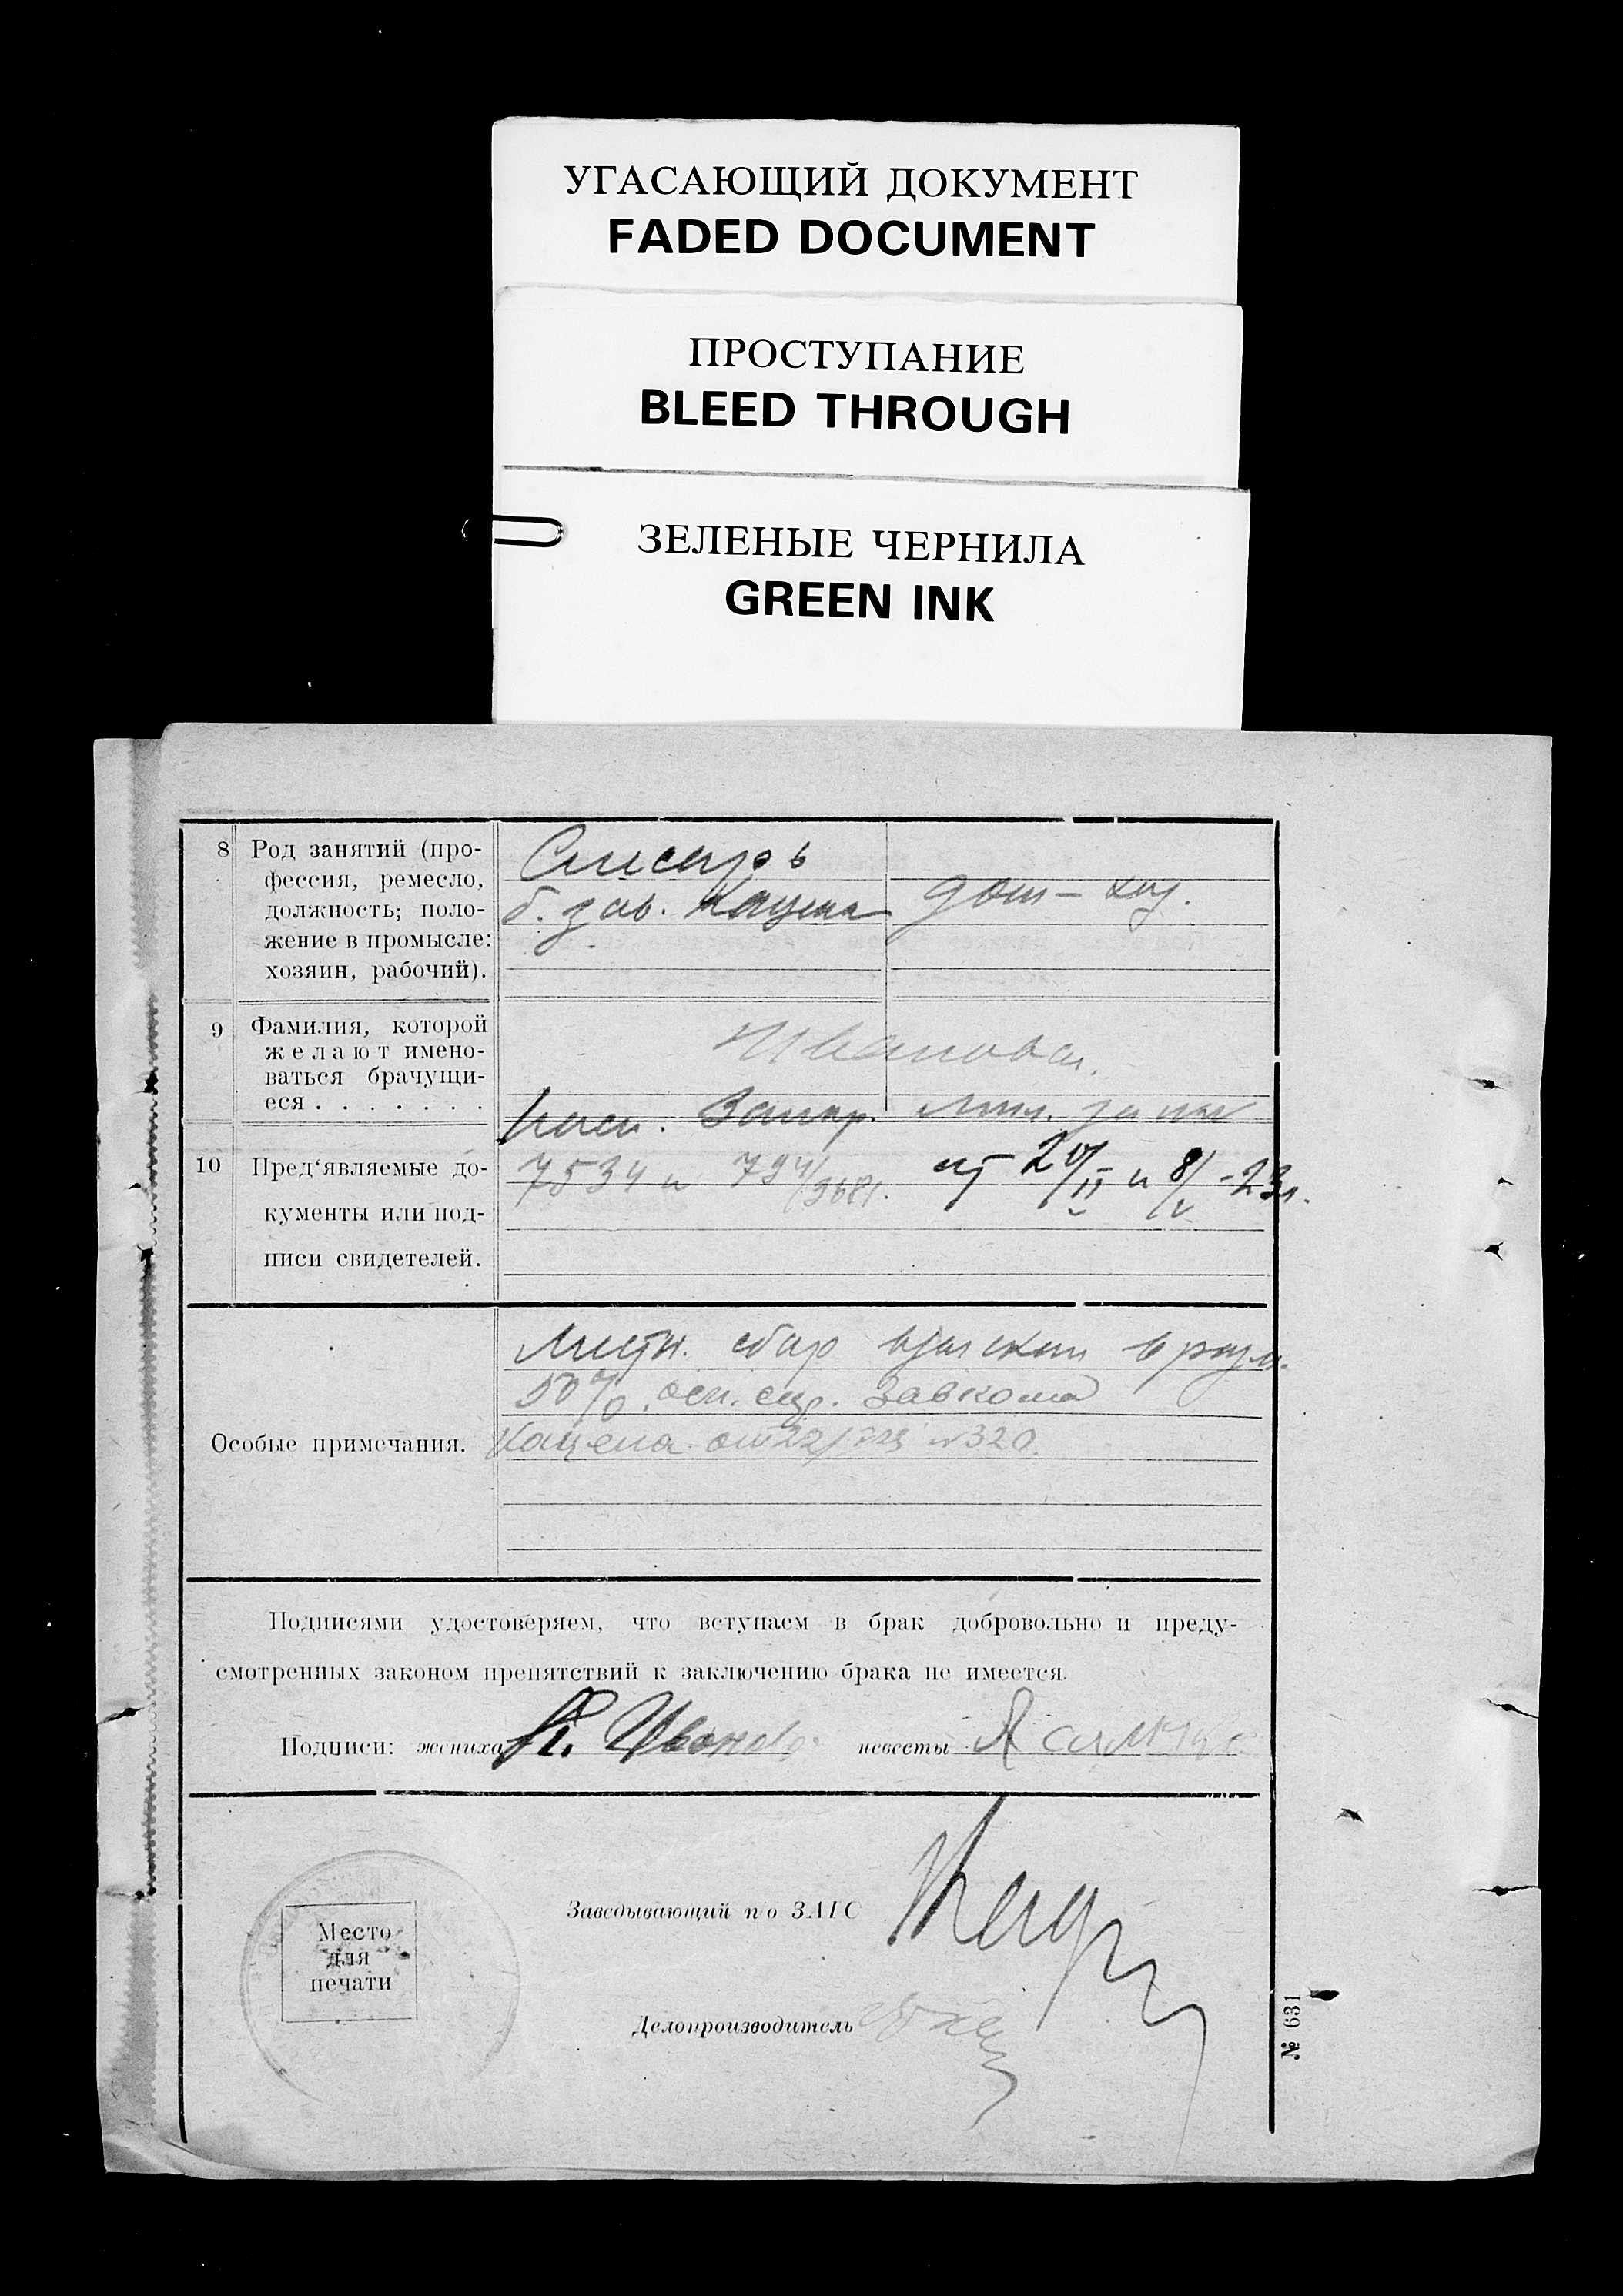 УГАСАЮЩИЙ ДОКУМЕНТ
FADED DOCUMENT
ПРОСТУПАНИЕ
BLEED THROUGH
ЗЕЛЕНЫЕ ЧЕРНИЛА
GREEN INK
8 Род занятий (про-
фессия, ремесло,
должность; поло-
жение в промысле:
хозяин, рабочий).
Слесарь
б. зав. Кацена
дом-хоз.
9 Фамилия, которой
желают имено-
ваться брачущи-
еся . . . . . . .
Ивановы.
10 Пред‘являемые до-
кументы или под-
писи свидетелей.
мил. за №№
7534 и 794/3681. от 20/II и 8/V -23г.
Особые примечания.
Местн. сбор взыскан в разм.
50%, осн. Завкома
Кацена от 22/ №320.
Подписями удостоверяем, что вступаем в брак добровольно и преду-
смотренных законом препятствий к заключению брака не имеется.
Подписи: жениха Иванов невесты
Заведывающий по ЗАГС
Место
для
печати
Делопроизводитель
№ 631